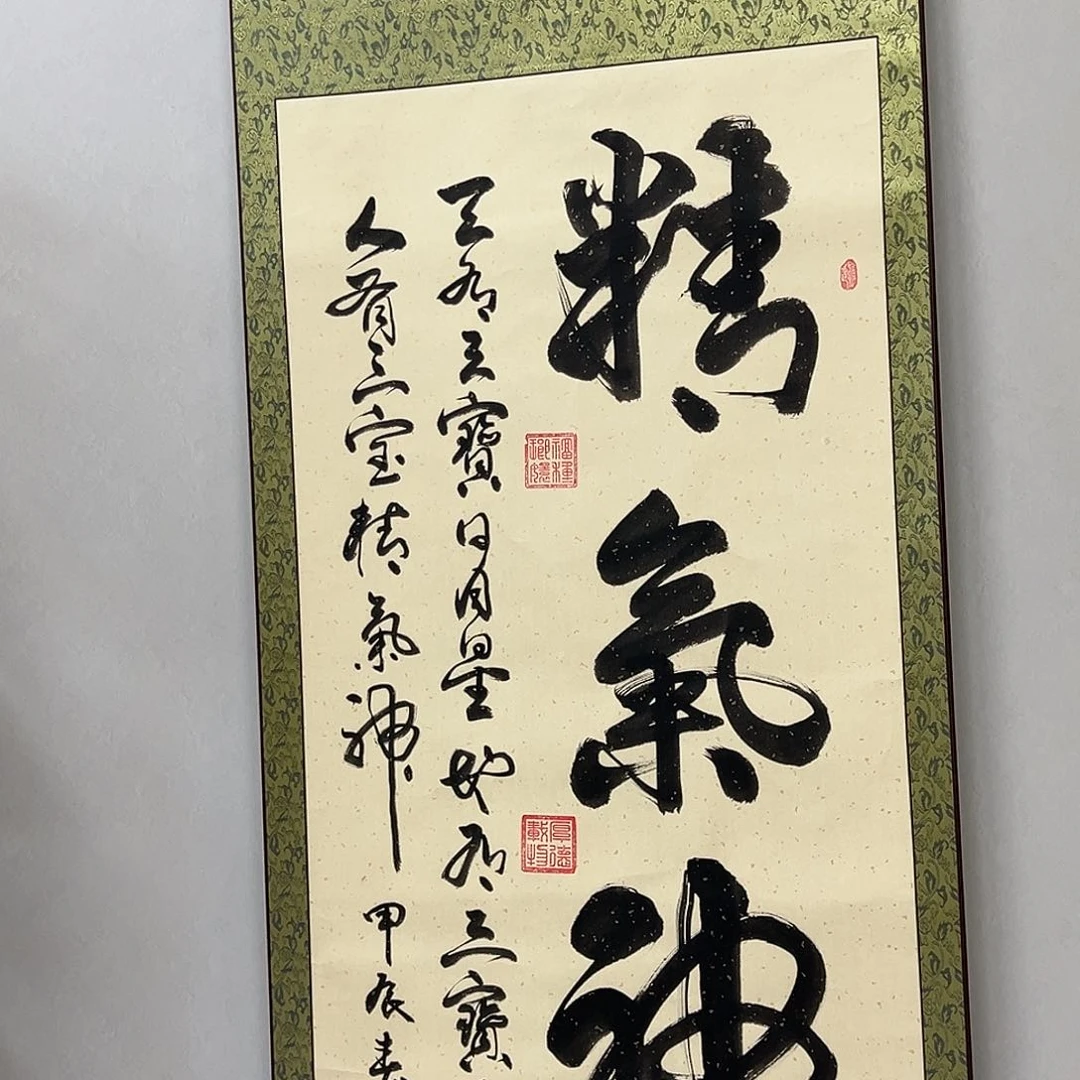 精氣神
天有三寶日月星地有三寶
人有三宝精氣神
甲辰春